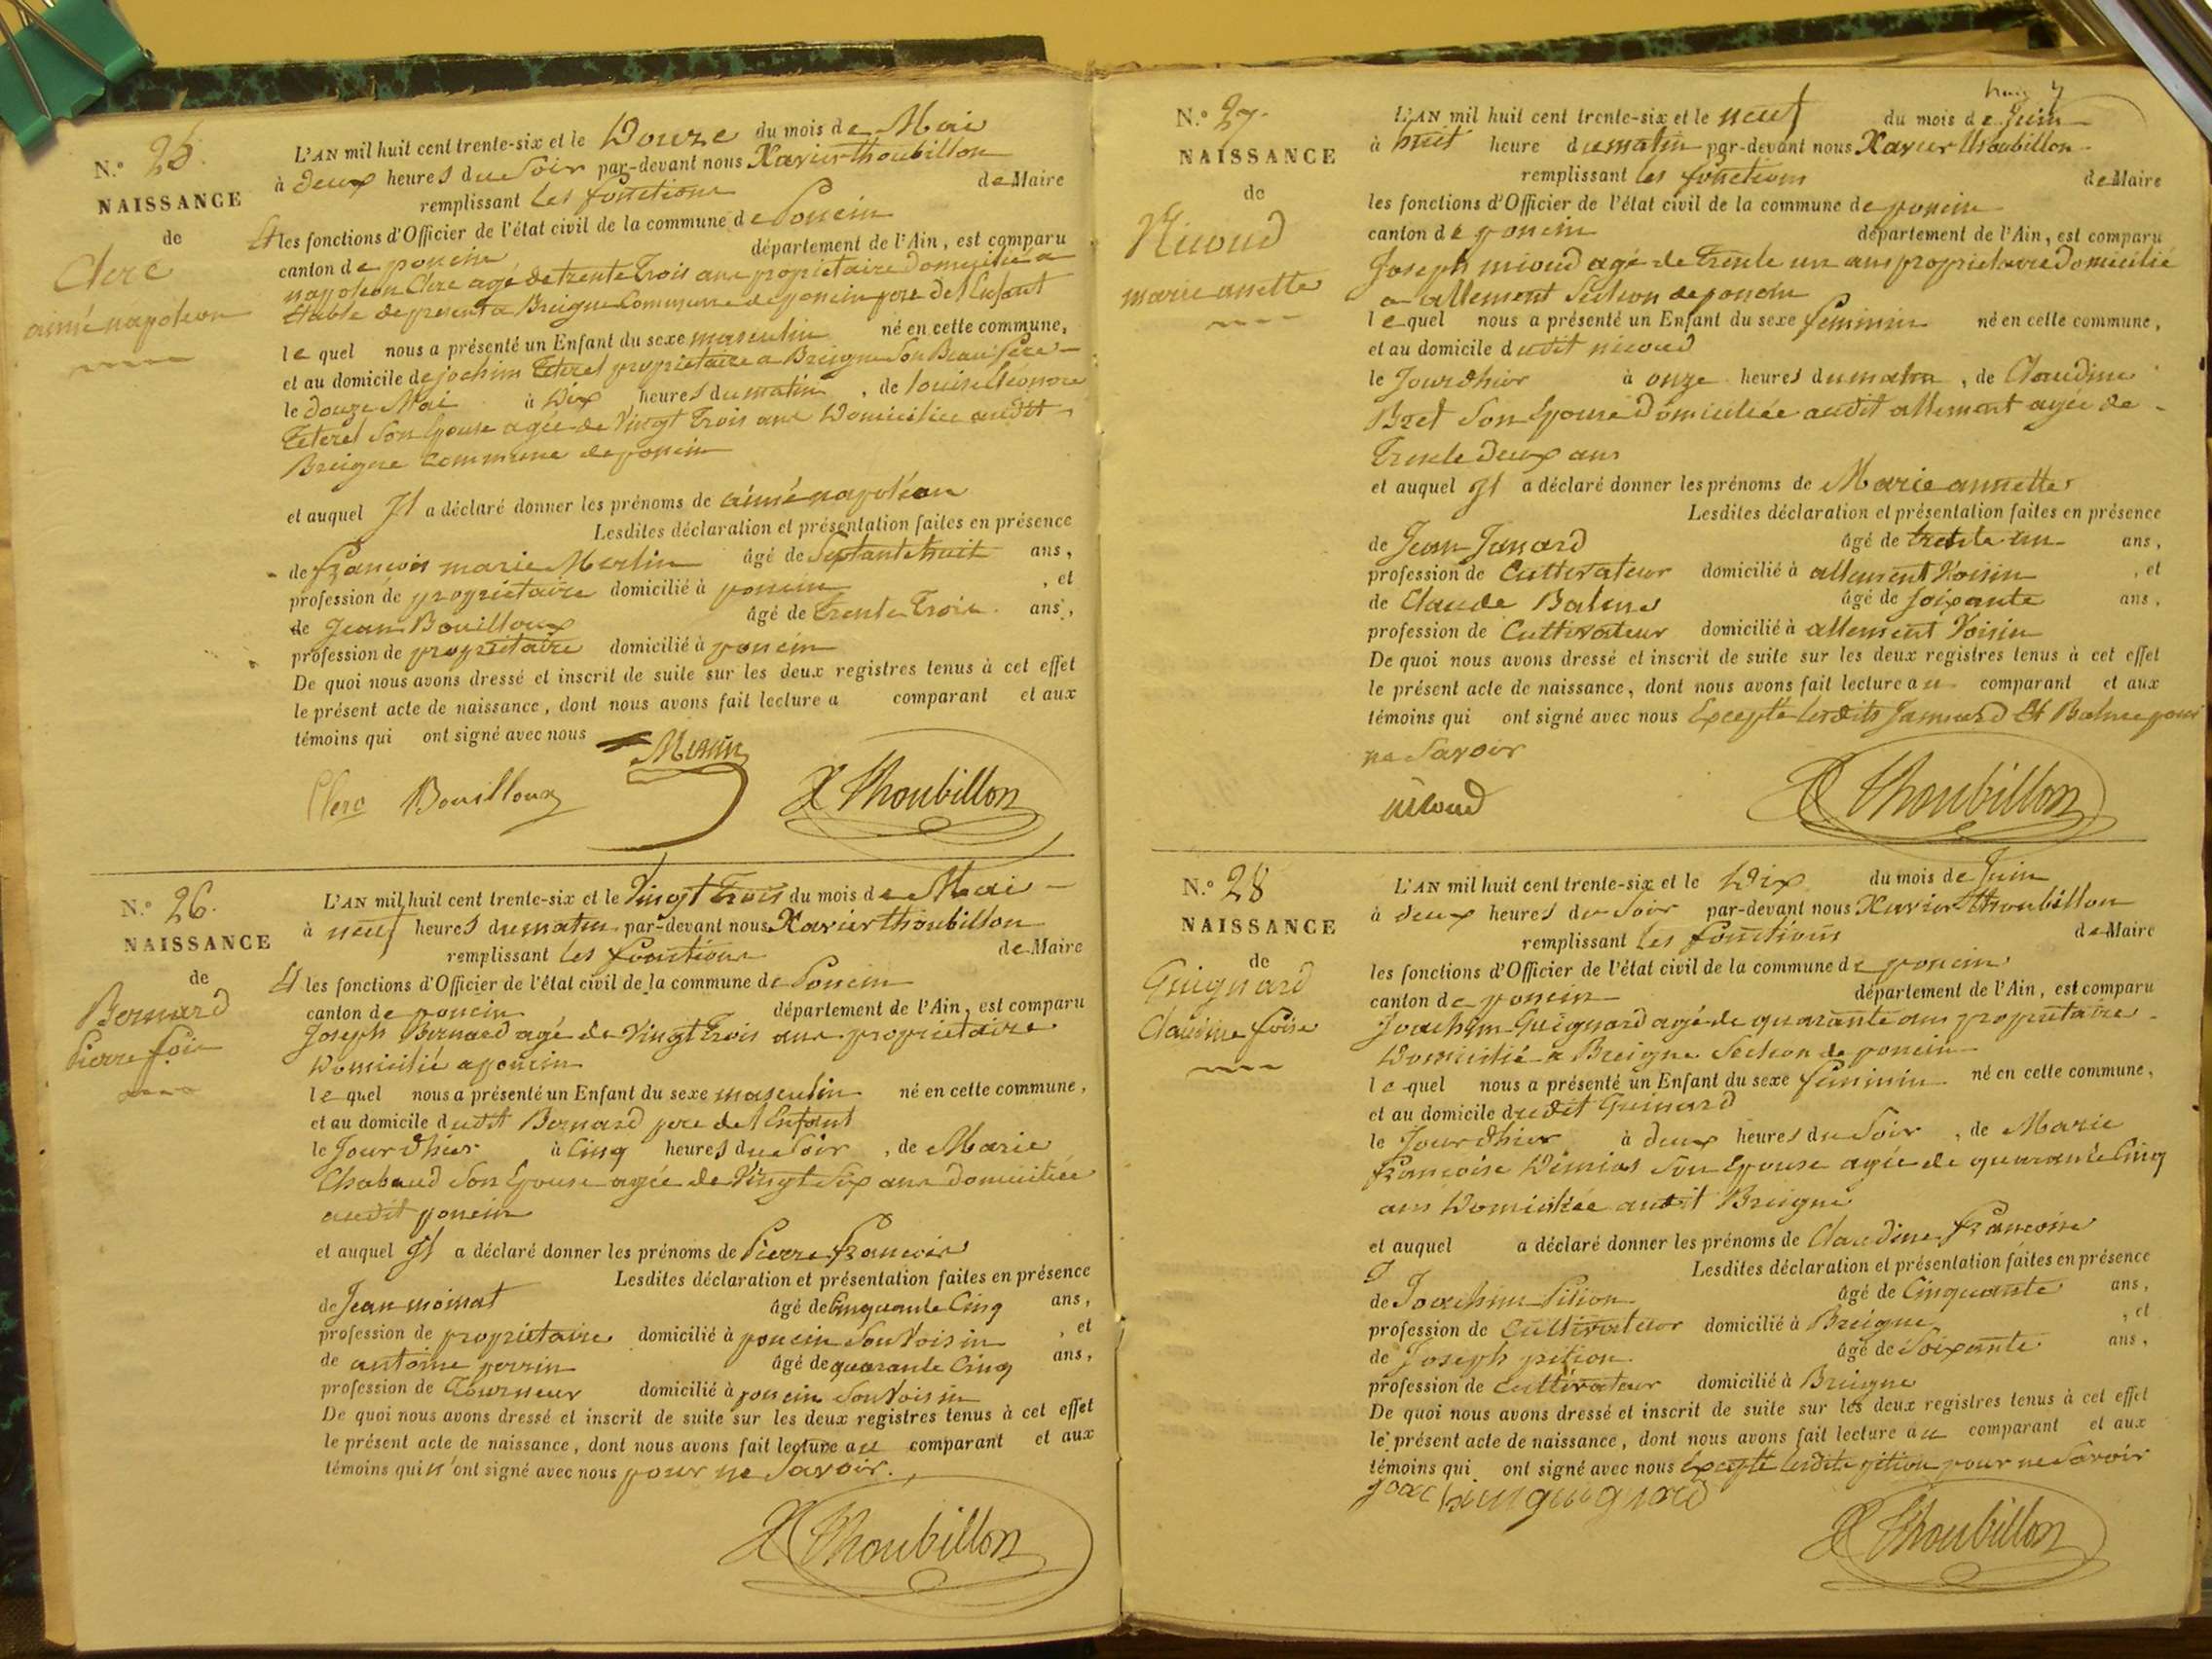 N.º 25.
NAISSANCE
de
Clerc
aimé napoléon
L'AN mil huit cent trente-six et le Douze du mois de Mai
à deux heures du Soir par-devant nous Xavier Thoubillon
remplissant les fonctions de Maire
Et les fonctions d'Officier de l'état civil de la commune de Poncin
canton de poncin département de l'Ain, est comparu
napoléon Clerc agé de trente Trois ans propriétaire domicilié a
Etable de present a Breigne Commune de poncin pere de l'Enfant
lequel nous a présenté un Enfant du sexe masculin né en cette commune,
et au domicile de jochim Teterel propriétaire a Breigne Son Beau Pere
le douze Mai à Dix heures du matin, de louise Eléonore
Teterel Son Epouse agée de Vingt Trois ans Domiciliée audit
Breigne Commune de poncin
et auquel Il a déclaré donner les prénoms de aimé napoléon
Lesdites déclaration et présentation faites en présence
de françois marie Merlin âgé de Septante huit ans,
profession de propriétaire domicilié à poncin, et
de Jean Bouilloux âgé de trente Trois ans,
profession de propriétaire domicilié à poncin
De quoi nous avons dressé et inscrit de suite sur les deux registres tenus à cet effet
le présent acte de naissance, dont nous avons fait lecture a comparant et aux
témoins qui ont signé avec nous
Clerc Bouilloux X Thoubillon
N.º 26.
NAISSANCE
de
Bernard
Pierre fois
L'AN mil huit cent trente-six et le Vingt Trois du mois de Mai
à neuf heures du matin par-devant nous Xavier Thoubillon
remplissant les fonctions de Maire
Et les fonctions d'Officier de l'état civil de la commune de Poncin
canton de poncin département de l'Ain, est comparu
Joseph Bernard agé de Vingt Trois ans propriétaire
Domicilié a poncin
lequel nous a présenté un Enfant du sexe masculin né en cette commune,
et au domicile dudit Bernard pere de l'Enfant
le Jour d'hier à Cinq heures du Soir, de Marie
Chabaud Son Epouse agée de Vingt Six ans Domiciliée
audit poncin
et auquel Il a déclaré donner les prénoms de Pierre françois
Lesdites déclaration et présentation faites en présence
de Jean moinat âgé de Cinquante Cinq ans,
profession de propriétaire domicilié à poncin Son Voisin, et
de antoine perrin âgé de quarante Cinq ans,
profession de Tourneur domicilié à poncin Son Voisin
De quoi nous avons dressé et inscrit de suite sur les deux registres tenus à cet effet
le présent acte de naissance, dont nous avons fait lecture au comparant et aux
témoins qui n'ont signé avec nous pour ne Savoir.
X Thoubillon
N.º 27.
NAISSANCE
de
Nicoud
marie anette
L'AN mil huit cent trente-six et le neuf du mois de Juin
à huit heure du matin par-devant nous Xavier Thoubillon
remplissant les fonctions de Maire
les fonctions d'Officier de l'état civil de la commune de poncin
canton de poncin département de l'Ain, est comparu
Joseph nicoud agé de Trente un ans propriétaire Domicilié
a allement Section de poncin
lequel nous a présenté un Enfant du sexe feminin né en cette commune,
et au domicile dudit nicoud
le Jour d'hier à onze heures du matin, de Claudine
Bret Son Epouse Domiciliée audit allement agée de
Trente Deux ans
et auquel Il a déclaré donner les prénoms de Marie annette
Lesdites déclaration et présentation faites en présence
de Jean Janard âgé de trente un ans,
profession de Cultivateur domicilié à allement Voisin, et
de Claude Balme âgé de Soixante ans,
profession de Cultivateur domicilié à allement Voisin
De quoi nous avons dressé et inscrit de suite sur les deux registres tenus à cet effet
le présent acte de naissance, dont nous avons fait lecture au comparant et aux
témoins qui ont signé avec nous Excepté lesdits Jannard Et Balme pour
ne Savoir
nicoud X Thoubillon
N.º 28
NAISSANCE
de
Guignard
Claudine foise
L'AN mil huit cent trente-six et le Dix du mois de Juin
à deux heures du Soir par-devant nous Xavier Thoubillon
remplissant les fonctions de Maire
les fonctions d'Officier de l'état civil de la commune de poncin
canton de poncin département de l'Ain, est comparu
Joachim Guignard agé de quarante ans propriétaire
Domicilié a Breigne Section de poncin
lequel nous a présenté un Enfant du sexe feminin né en cette commune,
et au domicile dudit Guinard
le Jour d'hier à deux heures du Soir, de Marie
françoise Son Epouse agée de quarante Cinq
ans Domiciliée audit Breigne
et auquel a déclaré donner les prénoms de Claudine françoise
Lesdites déclaration et présentation faites en présence
de Joachim Pition âgé de Cinquante ans,
profession de Cultivateur domicilié à Breigne, et
de Joseph pition âgé de Soixante ans,
profession de Cultivateur domicilié à Breigne
De quoi nous avons dressé et inscrit de suite sur les deux registres tenus à cet effet
le présent acte de naissance, dont nous avons fait lecture au comparant et aux
témoins qui ont signé avec nous Excepté lesdits pition pour ne Savoir
joachim guignard
X Thoubillon